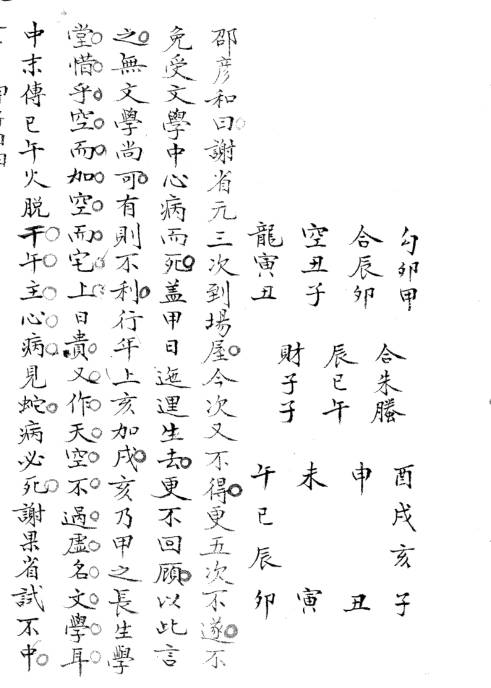 勾卯甲
合辰卯
空丑子
龍寅丑
合朱螣
辰巳午
財子子
酉戌亥子
申　　丑
未　　寅
午巳辰卯
邵彦和曰謝省元三次到場屋今次又不得更五次不遂不
免受文學中心病而死蓋甲日迤邐生去更不回顧以此言
之無文學尚可有則不利行年上亥加戌亥乃甲之長生學
堂惜乎空而加空而宅上日貴又作天空不過虛名文學耳
中末傳巳午火脱干午主心病見蛇病必死謝果省試不中